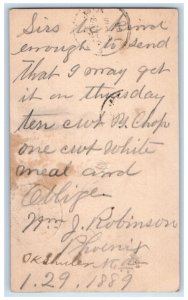 Sirs be kind
enough to send
that I may get
it on thusday
ten cwt Chop
one cwt White
meal and
Oblige
Wm J. Robinson
Phoenix
1.29.1889